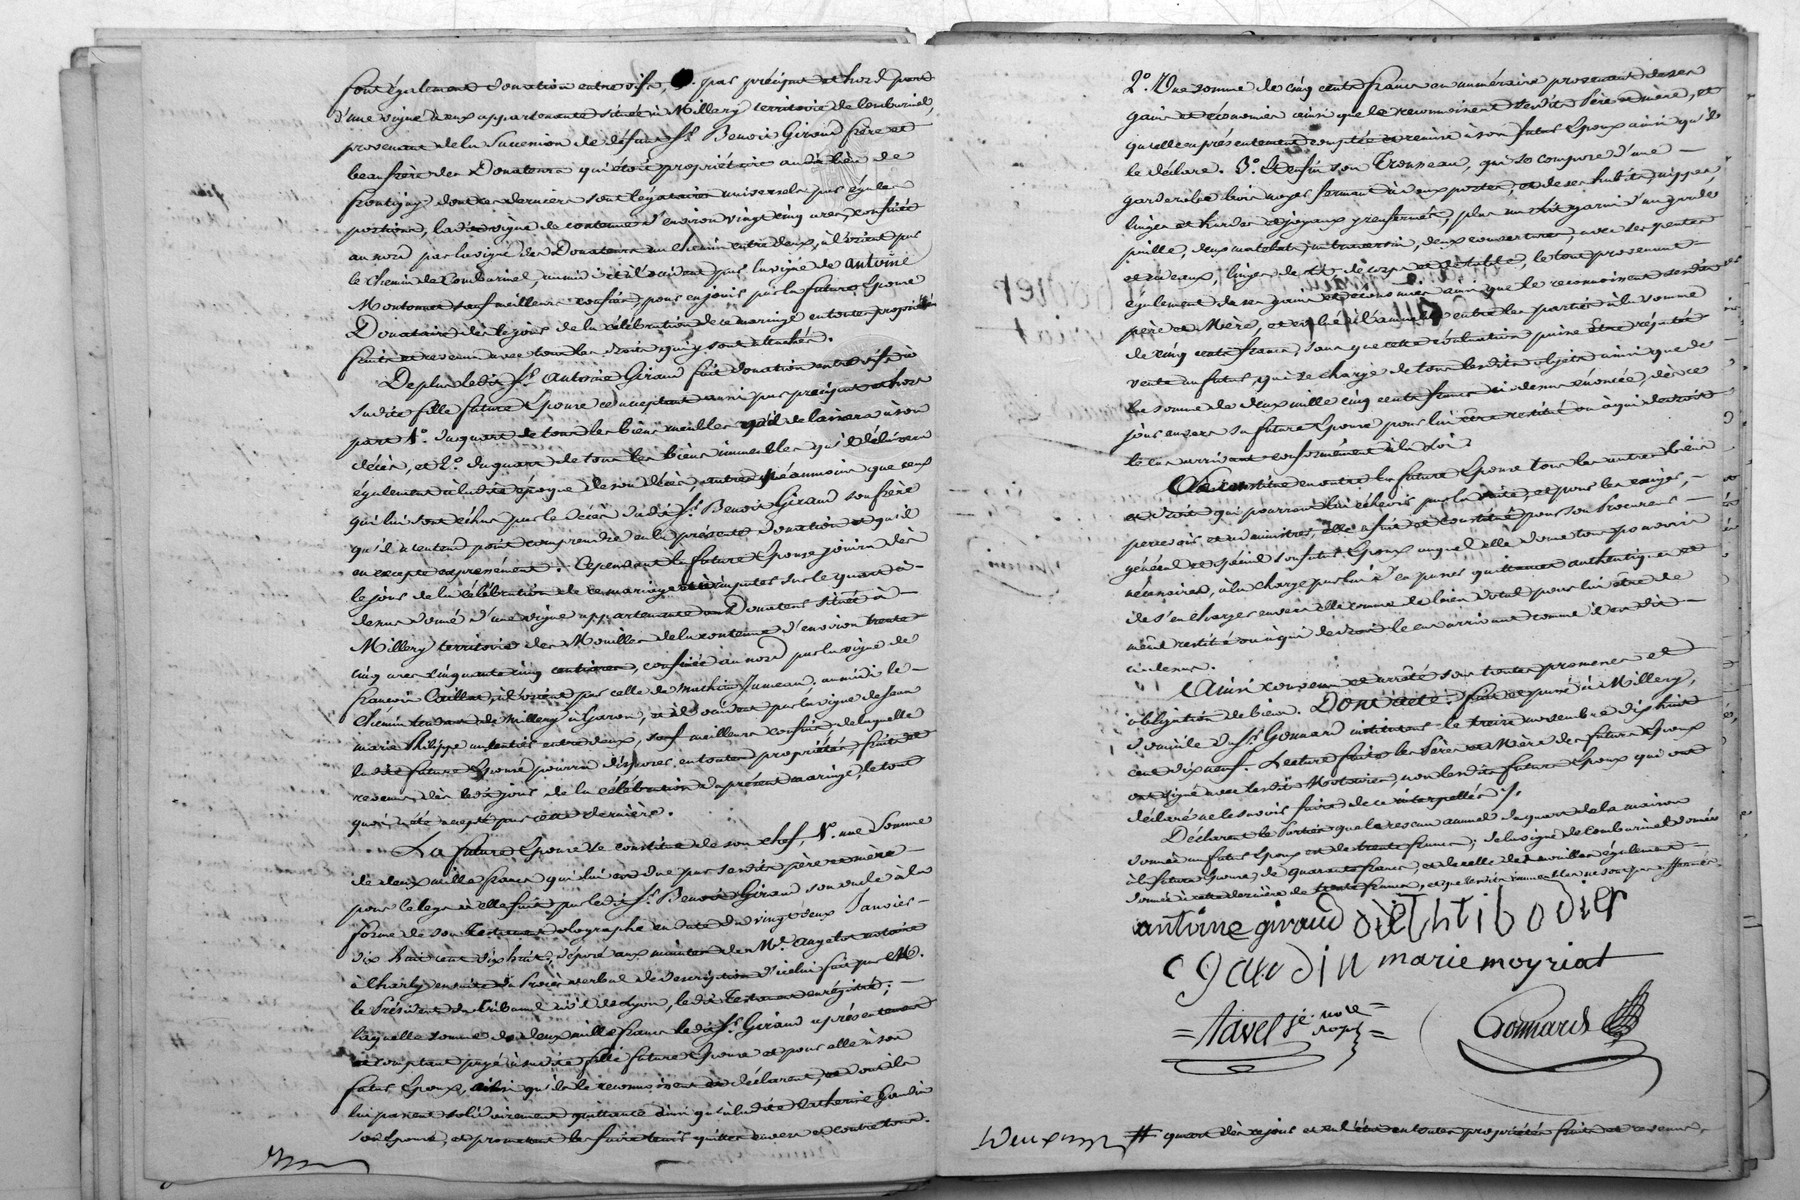 font également donation entre vifs, par préciput et hors part
d'une vigne à eux appartenante située à Millery territoire de Combarinel,
provenant de la Succession de défunt Sr. Benoit Giraud frère et
beau frère des Donateurs qui étoit propriétaire au dit lieu de
frontigny dont ces derniers sont légataires universels par égales
portions, ladite vigne de contenue d'environ vingt cinq ares, confinée
au nord par la vigne des Donateurs un chemin entre deux, à l'orient par
le chemin de Combarinel, au midi et à l'occident par la vigne de antoine
sauf meilleurs confins, pour en jouir par la future Epouse
Donataire dès le jour de la célébration de ce mariage en toutes propriétés
fruits et revenus avec tous les droits qui y sont attachés.
De plus ledit Sr. Antoine Giraud fait donation entre vifs à
sa dite fille future Epouse ce acceptant aussi par préciput et hors
part 1°. du quart de tous les biens meubles qu'il délaissera à son
décès, et 2°. du quart de tous les biens immeubles qu'il délaissera
également à la dite époque de son décès, néanmoins que ceux
qui lui sont échus par le décès dudit Sr. Benoit Giraud son frère
qu'il n'entend point comprendre en la présente donation et qu'il
en excepte expressément. Cependant la future Epouse jouira dès
le jour de la célébration de ce mariage et à imputer sur le quart ci-
dessus donné d'une vigne appartenante au Donateur située à
Millery territoire des Mouilles de la contenue d'environ trente
cinq ares cinquante cinq centiares, confinée au nord par la vigne de
françois Caillat, à l'orient par celle de Mathieu Jumeau, au midi le
chemin tendant de Millery à Givors, et à l'occident par la vigne de Jean
marie Philippe un sentier entre deux, sauf meilleurs confins, de laquelle
la dite future Epouse pourra disposer en toutes propriétés fruits et
revenus dès ledit jour de la célébration du présent mariage, le tout
quoi a été accepté par cette dernière.
La future Epouse se constitue de son chef, 1°. une Somme
de deux mille francs qui lui est due par ses dits père et mère
pour le legs à elle fait par ledit Sr. Benoit Giraud son oncle à la
forme de son Testament olographe en date du vingt deux Janvier
dix huit cent dix huit, déposé aux minutes de Me. notaire
à Charly ensuite du Procès verbal de description d'icelui fait par M.
le Président du Tribunal civil de Lyon, ledit Testament enregistré;
laquelle somme de deux mille francs ledit Sr. Giraud a présentement
et comptant payé à sa dite fille future Epouse et pour elle à son
futur Epoux, ainsi qu'ils le reconnoissent et déclarent, et dont ils
lui passent solidairement quittance ainsi qu'à la dite Catherine Gaudin
son Epouse, et promettent les faire tenir quittes envers et contre tous.
2°. Une somme de cinq cents francs en numéraire provenant de ses
gains et économies ainsi que le reconnoissent ses dits Père et mère, et
qu'elle a présentement comptée et remise à son futur Epoux ainsi qu'il
le déclare. 3°. Et enfin son Trousseau, qui se compose d'une
garderobe bois noyer fermant à deux portes, et de ses habits, nippes
linges et hardes et joyaux y renfermés, plus un lit garni d'un garde
paille, deux matelats, un traversin, deux couvertures, avec les pentes
et rideaux, linges de lit de corps et de table, le tout provenant
également de ses gains et économies ainsi que le reconnoissent ses dits
père et Mère, et évalué à l'amiable entre les parties à la somme
de cinq cents francs, sans que cette évaluation puisse être réputée
vente au futur, qui se charge de tous les dits objets ainsi que de
la somme de deux mille cinq cents francs ci dessus énoncée, dès ce
jour envers sa future Epouse pour lui être restitué ou à qui de droit
le cas arrivant conformément à la loi.
Se constitue en outre la future Epouse tous les autres biens
et droits qui pourront lui échéoir par la suite, et pour les exiger,
percevoir et administrer, elle a fait et constitué pour son Procureur
général et spécial son futur Epoux auquel elle donne tous pouvoirs
nécessaires, à la charge par lui d'en passer quittance authentique et
de s'en charger envers elle comme de bien dotal pour lui être de
même restitué ou à qui de droit le cas arrivant comme il est dit
ci dessus.
Ainsi convenu et arrêté sous toutes promesses et
obligation de biens. Dont acte: fait et passé à Millery,
domicile du Sr. Gonnard instituteur le treize novembre dix huit
cent dix neuf. Lecture faite les Pères et Mères des futurs Epoux
ont signé avec les dits Notaires, non les dits futurs Epoux qui ont
déclaré ne le savoir faire de ce interpellés ./.
Déclarant les Parties que le revenu annuel du quart de la maison
donnée au futur Epoux est de trente francs; de la vigne de Combarinel donnée
à la future Epouse de quarante francs, et de celle des Mouilles également
donnée à cette dernière de trente francs, et que les dits immeubles ne sont pas affermés.
antoine giraud thibodier
C gaudin marie moyriat
= Navel je. nore roy =
Gonnard
# quart dès ce jour et en l'état en toutes propriétés fruits et revenus